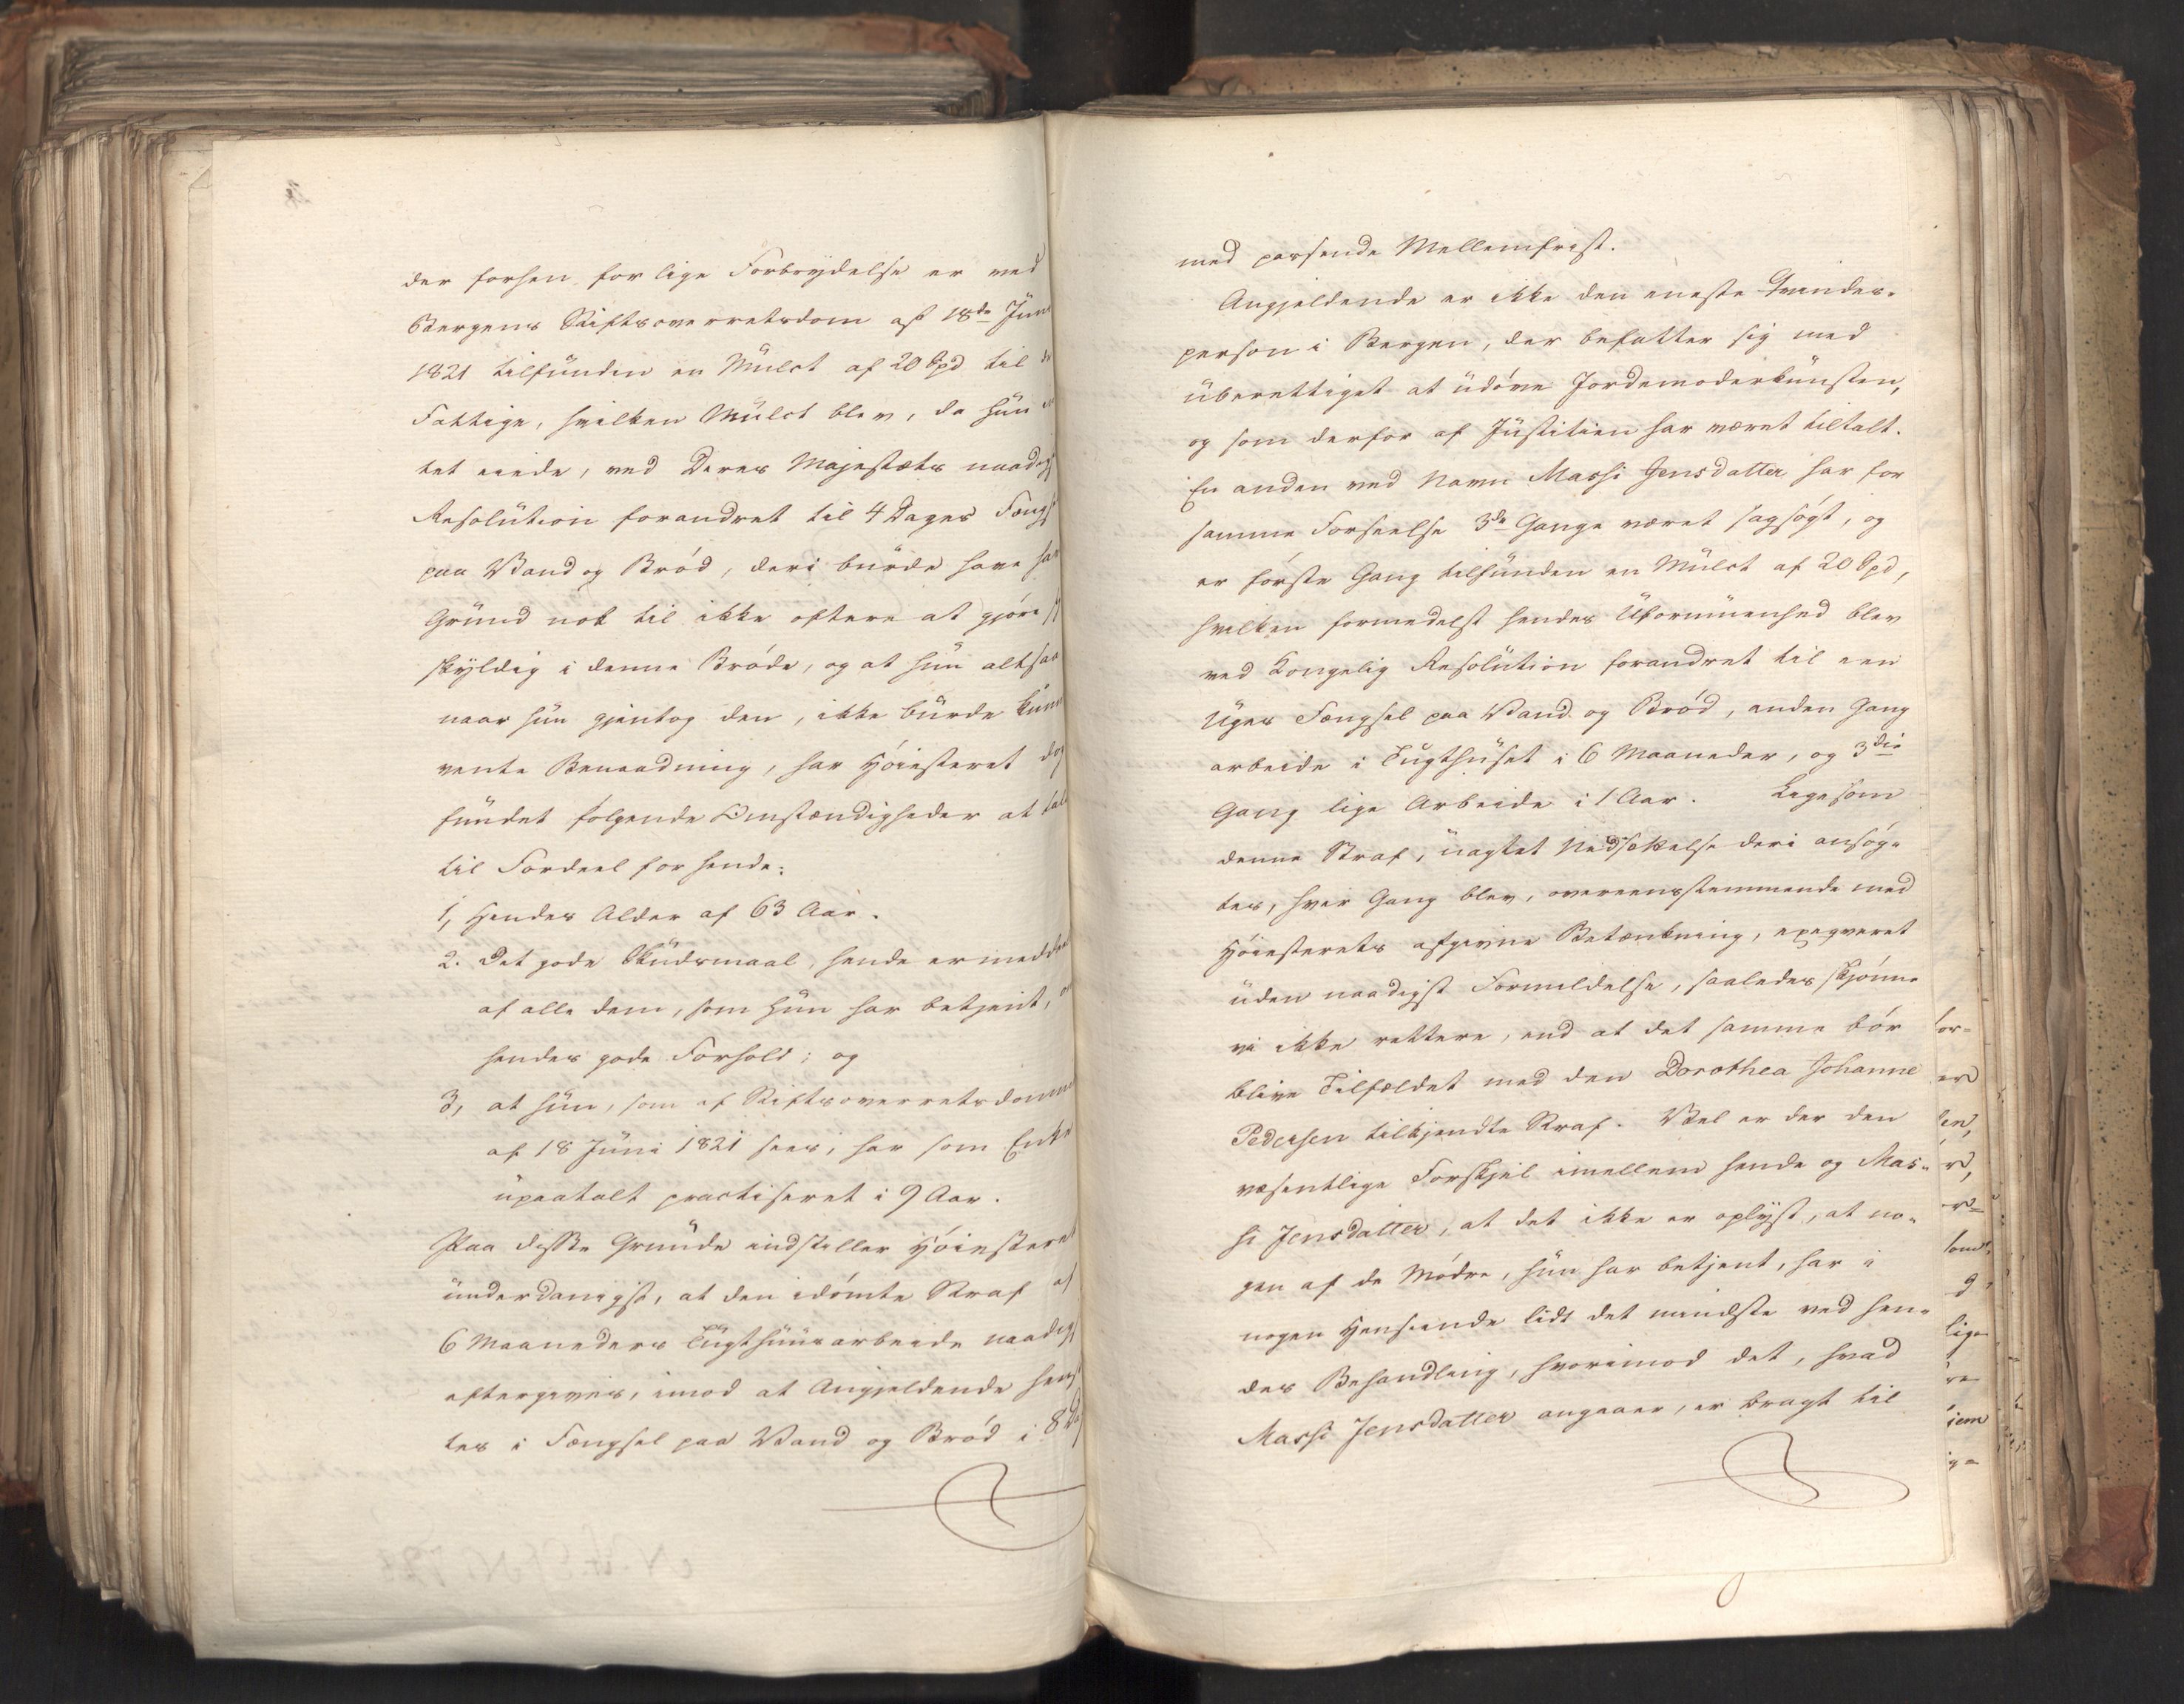 der forhen for lige Forbrydelse er ved
Bergens Stiftsoverretsdom af 18de Juni
1821 tilfunden en Mulct af 20 Spd til de
Fattige, hvilken Mulct blev, da hun
tet eiede, ved Deres Majestæts naadigst
Resolution forandret til 4 Dages Fængs
paa Vand og Brød, deri burde have
Grund nok til ikke oftere at gjøre
skyldig i denne Brøde, og at hun altsaa
naar hun gjentog den, ikke burde kunn
vente Benaadning, har Høiesteret dog
fundet følgende Omstændigheder at tale
til Fordeel for hende:
1, Hendes Alder af 63 Aar.
2. Det gode Skudsmaal, hende er meddeelt
af alle dem, som hun har betjent,
hendes gode Forhold; og
3, at hun, som af Stiftsoverretsdomme
af 18 Juni 1821 sees, har som Enke
upaatalt practiseret i 9 Aar.
Paa disse Grunde indstiller Høiesteret
underdanigst, at den idømte Straf af
6 Maaneders Tugthuusarbeide naadigst
eftergives, imod at Angjeldende hens
tes i Fængsel paa Vand og Brød i 8
med passende Mellemfrist.
Angjeldende er ikke den eneste Qvindes-
person i Bergen, der befatter sig med
uberettiget at udøve Jordemoderkunsten,
og som derfor af Justitien har været tiltalt.
En anden ved Navn Massi Jensdatter har for
samme Forseelse 3de Gange været sagsøgt, og
er første Gang tilfunden en Mulct af 20 Spd,
hvilken formedelst hendes Uformuenhed blev
ved Kongelig Resolution forandret til een
Uges Fængsel paa Vand og Brød, anden Gang
arbeide i Tugthuset i 6 Maaneder, og 3die
Gang lige Arbeide i 1 Aar. Ligesom
denne Straf, uagtet Nedsættelse deri ansøg-
tes, hver Gang blev, overeensstemmende med
Høiesterets afgivne Betænkning, exeqveret
uden naadigst Formildelse, saaledes skjønne
vi ikke rettere, end at det samme bør
blive Tilfældet med den Dorothea Johanne
Pedersen tilkjendte Straf. Vel er der den
væsentlige Forskjel imellem hende og Mas-
si Jensdatter, at det ikke er oplyst, at no-
gen af de Mødre, hun har betjent, har i
nogen Henseende lidt det mindste ved hen-
des Behandling, hvorimod det, hvad
Massi Jensdatter angaaer, er bragt til